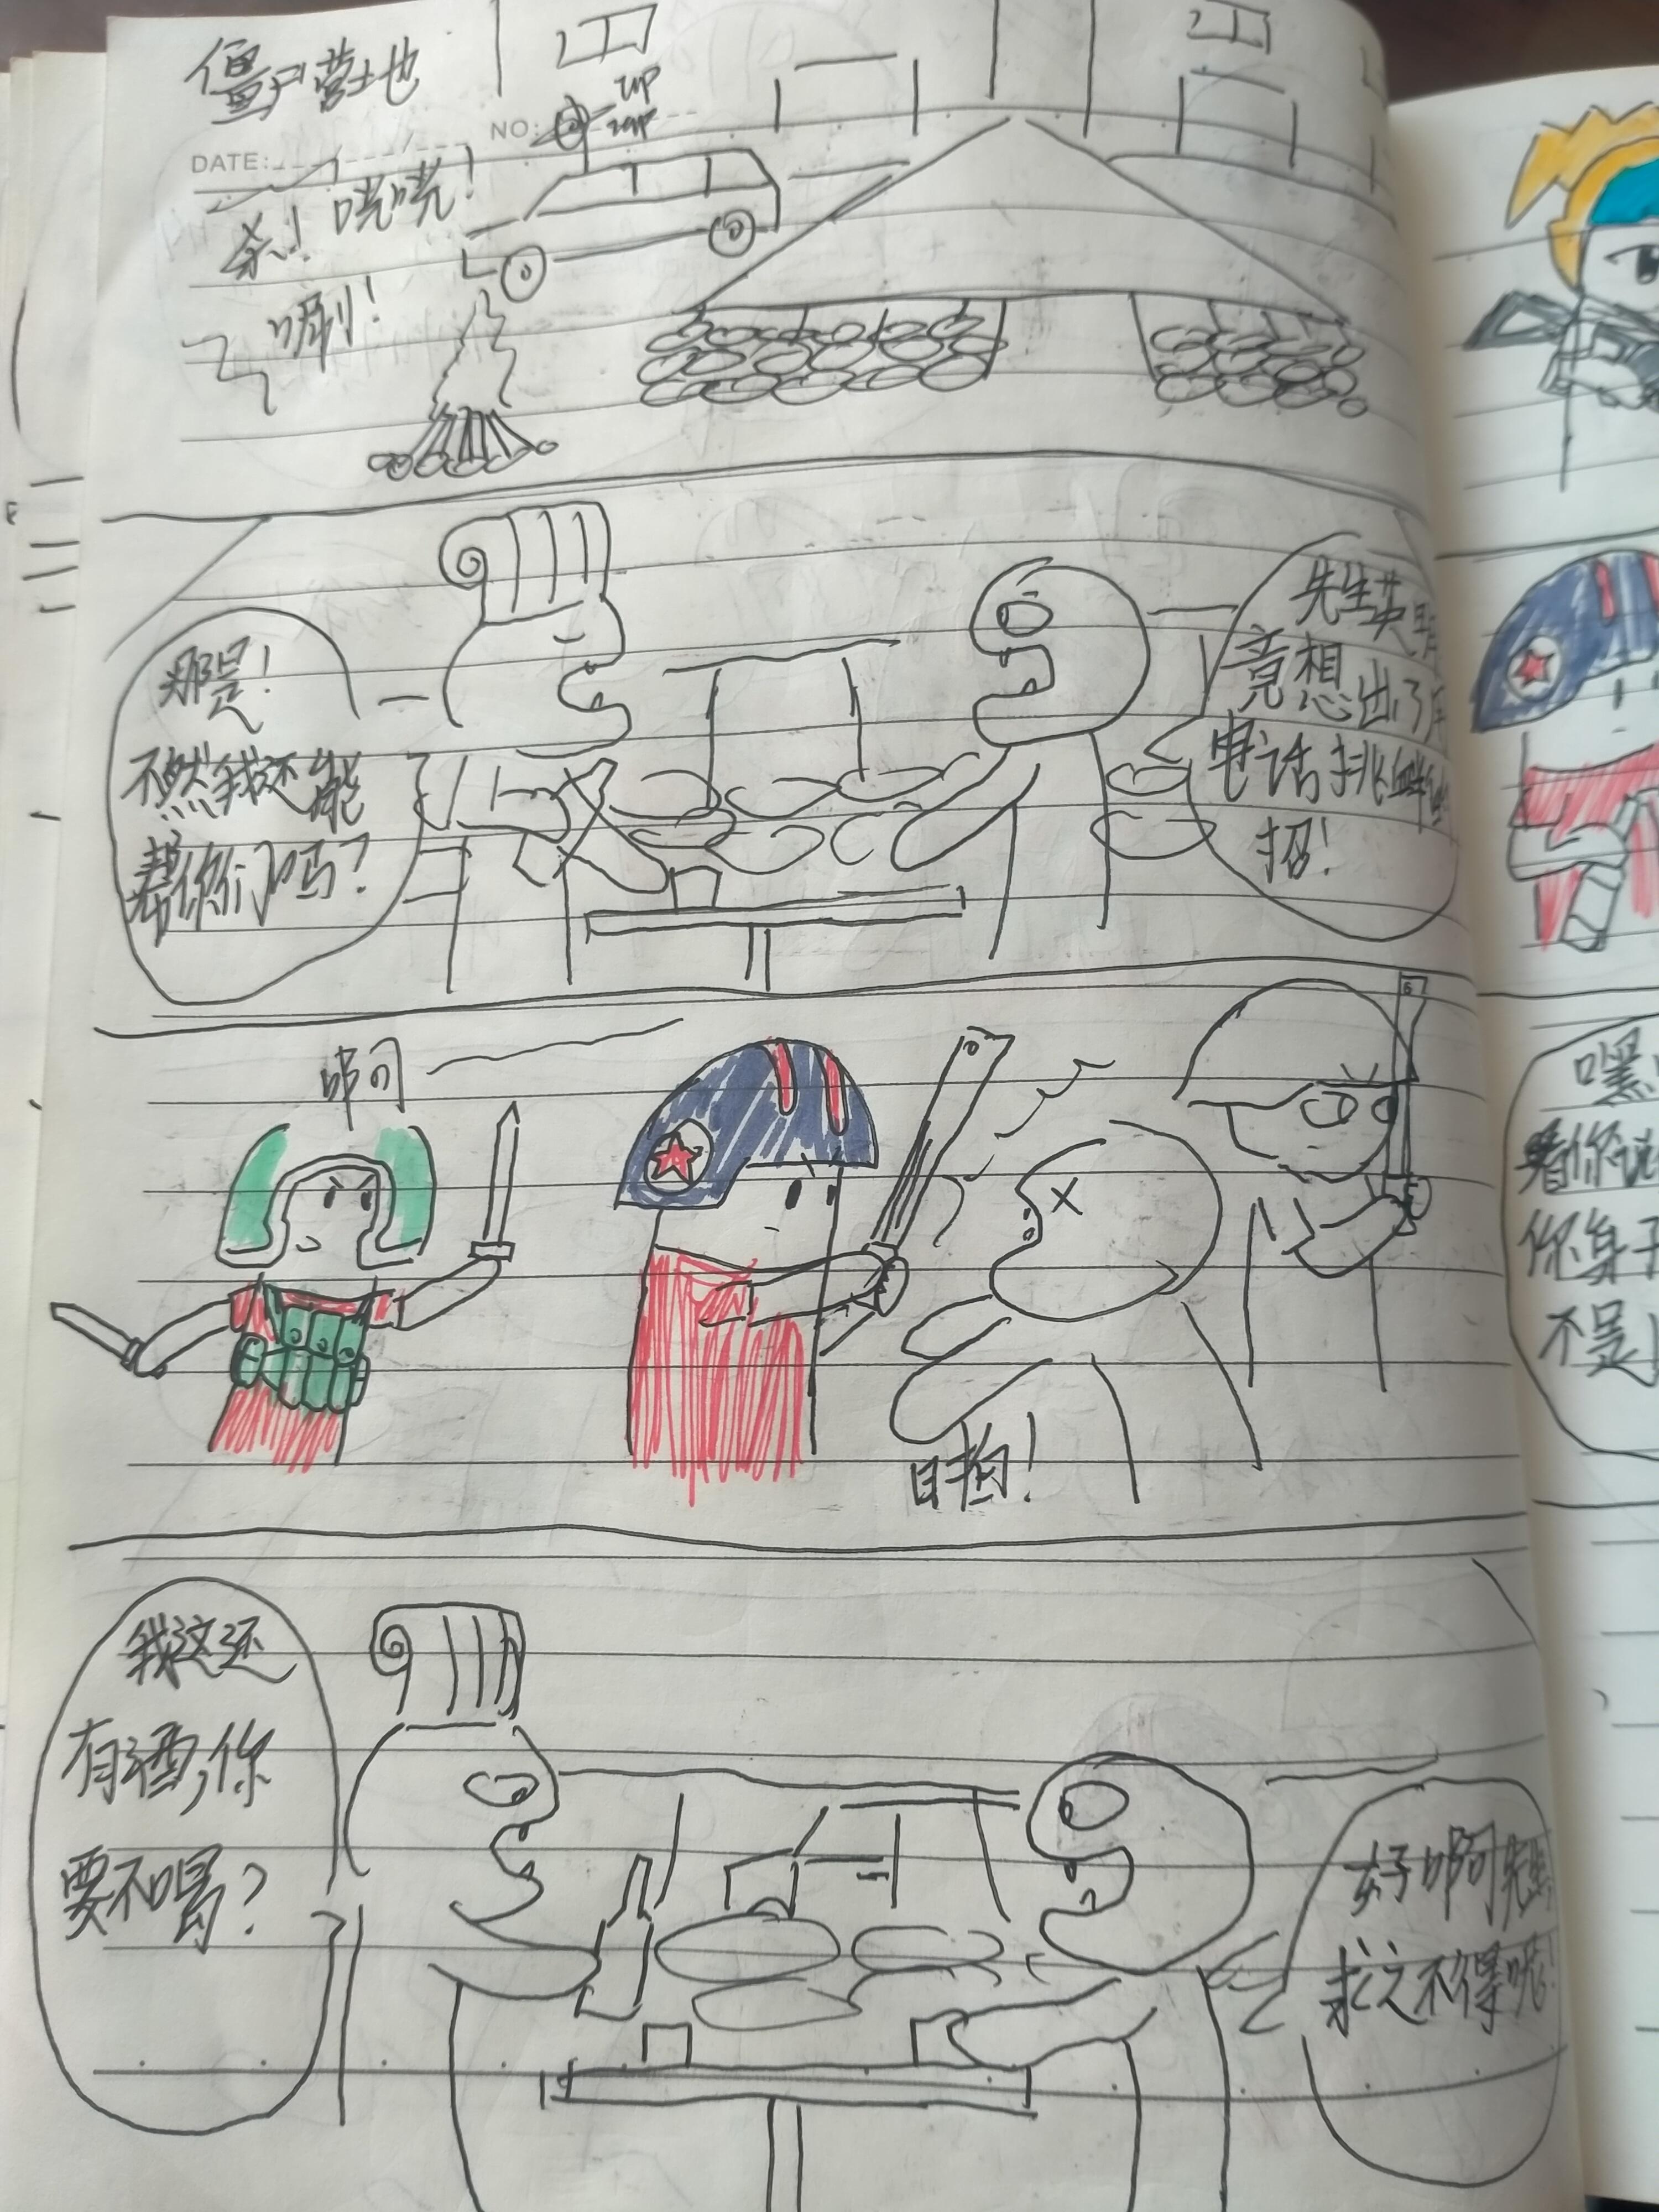 僵尸营地
NO:
DATE:
杀! 咣咣!
唰!
先生英
竟想出了
电话挑衅
招!
那是!
不然我还能
帮你们吗?
啊
我这还
有酒,你
要不喝?
好啊先生,
求之不得呢!
嘿
看你
你身子
不是